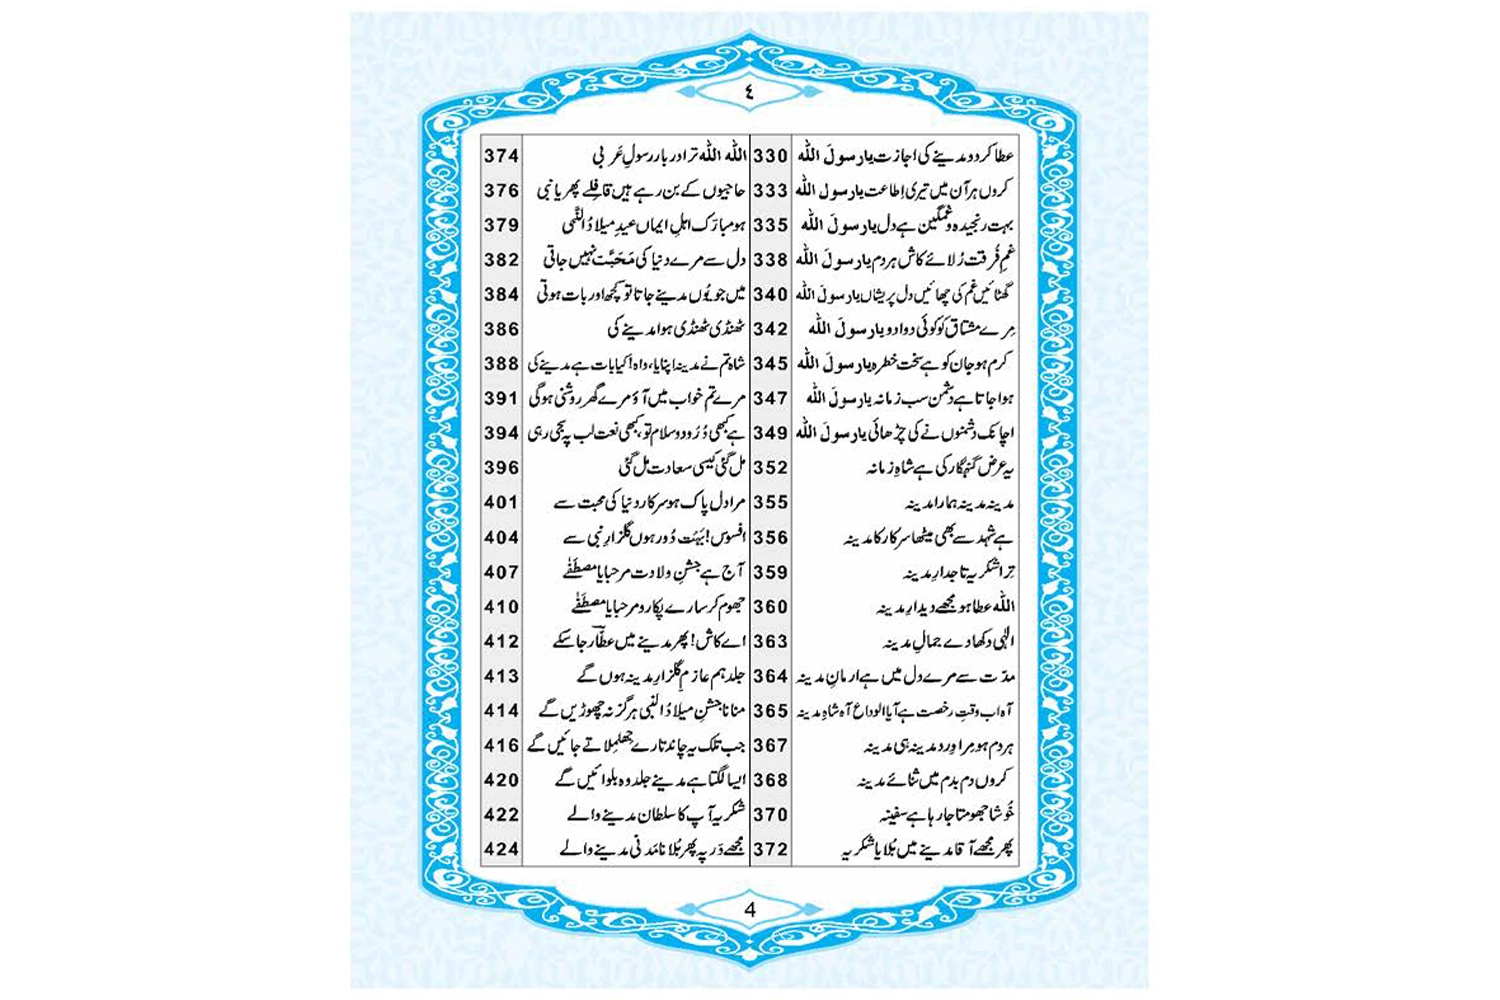 ٤
عطا کردو مدینے کی اجازت یارسولَ اللہ 330
کروں ہر آن میں تیری اِطاعت یارسول اللہ 333
بہت رنجیدہ و غمگین ہے دل یارسولَ اللہ 335
غمِ فُرقت رُلائے کاش ہر دم یارسولَ اللہ 338
گھٹائیں غم کی چھائیں دل پریشاں یارسولَ اللہ 340
مِرے مشتاق کو کوئی دوا دو یارسولَ اللہ 342
کرم ہو جان کو ہے سخت خطرہ یارسولَ اللہ 345
ہوا جاتا ہے دشمن سب زمانہ یارسولَ اللہ 347
اچانک دشمنوں نے کی چڑھائی یارسولَ اللہ 349
یہ عرض گنہگار کی ہے شاہِ زمانہ 352
مدینہ مدینہ ہمارا مدینہ 355
ہے شہد سے بھی میٹھا سرکار کا مدینہ 356
تِرا شکریہ تاجدارِ مدینہ 359
اللہ عطا ہو مجھے دیدارِ مدینہ 360
الٰہی دکھا دے جمالِ مدینہ 363
مدّت سے مرے دل میں ہے ارمانِ مدینہ 364
آہ اب وقتِ رخصت ہے آیا الوداع آہ شاہِ مدینہ 365
ہر دم ہو مِرا وِرد مدینہ ہی مدینہ 367
کروں دم بدم میں ثنائے مدینہ 368
خُوشا جھومتا جارہا ہے سفینہ 370
پھر مجھے آقا مدینے میں بُلایا شکریہ 372
اللہ اللہ ترا دربار رسولِ عَرَبی 374
حاجیوں کے بن رہے ہیں قافِلے پھر یانبی 376
ہو مبارَک اہلِ ایماں عیدِ میلادُ النَّبی 379
دل سے مرے دنیا کی مَحَبَّت نہیں جاتی 382
میں جو یُوں مدینے جاتا تو کچھ اور بات ہوتی 384
ٹھنڈی ٹھنڈی ہوا مدینے کی 386
شاہ تم نے مدینہ اپنایا، واہ! کیا بات ہے مدینے کی 388
مرے تم خواب میں آؤ مرے گھر روشنی ہوگی 391
ہے کبھی دُرُود و سلام تو، کبھی نعت لب پہ سَجی رہی 394
مل گئی کیسی سعادت مل گئی 396
مرا دل پاک ہو سرکار دنیا کی محبت سے 401
افسوس! بَہُت دُور ہوں گلزارِ نبی سے 404
آج ہے جشنِ ولادت مرحبا یامصطَفٰے 407
جھوم کر سارے پکارو مرحبا یامصطَفٰے 410
اے کاش! پھر مدینے میں عطّارؔ جا سکے 412
جلد ہم عازمِ گلزارِ مدینہ ہوں گے 413
منانا جشنِ میلادُ النبی ہرگز نہ چھوڑیں گے 414
جب تلک یہ چاند تارے جِھلمِلاتے جائیں گے 416
ایسا لگتا ہے مدینے جلد وہ بلوائیں گے 420
شکریہ آپ کا سلطان مدینے والے 422
مجھے دَر پہ پھر بُلانا مَدَنی مدینے والے 424
4